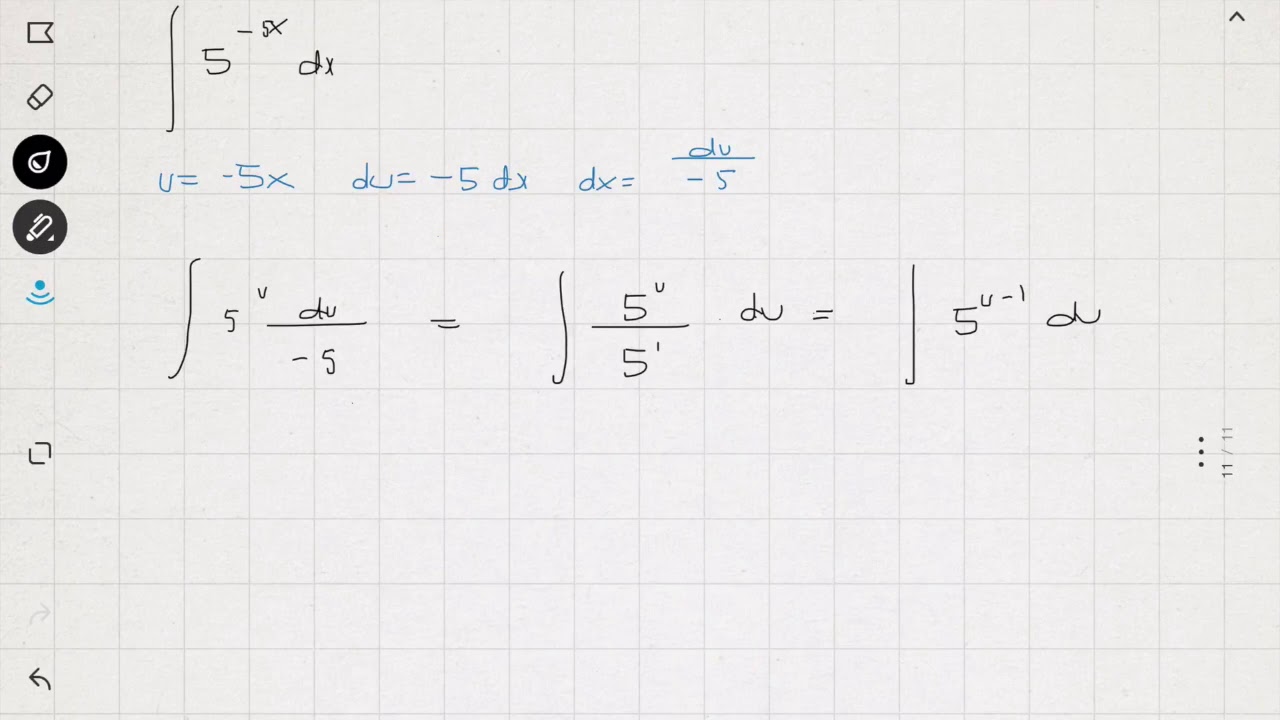 ∫ 5^(-5x) dx
u = -5x   du = -5 dx   dx = du/-5
∫ 5^u du/-5 = ∫ 5^u/5^1 · du = ∫ 5^(u-1) du
11 / 11